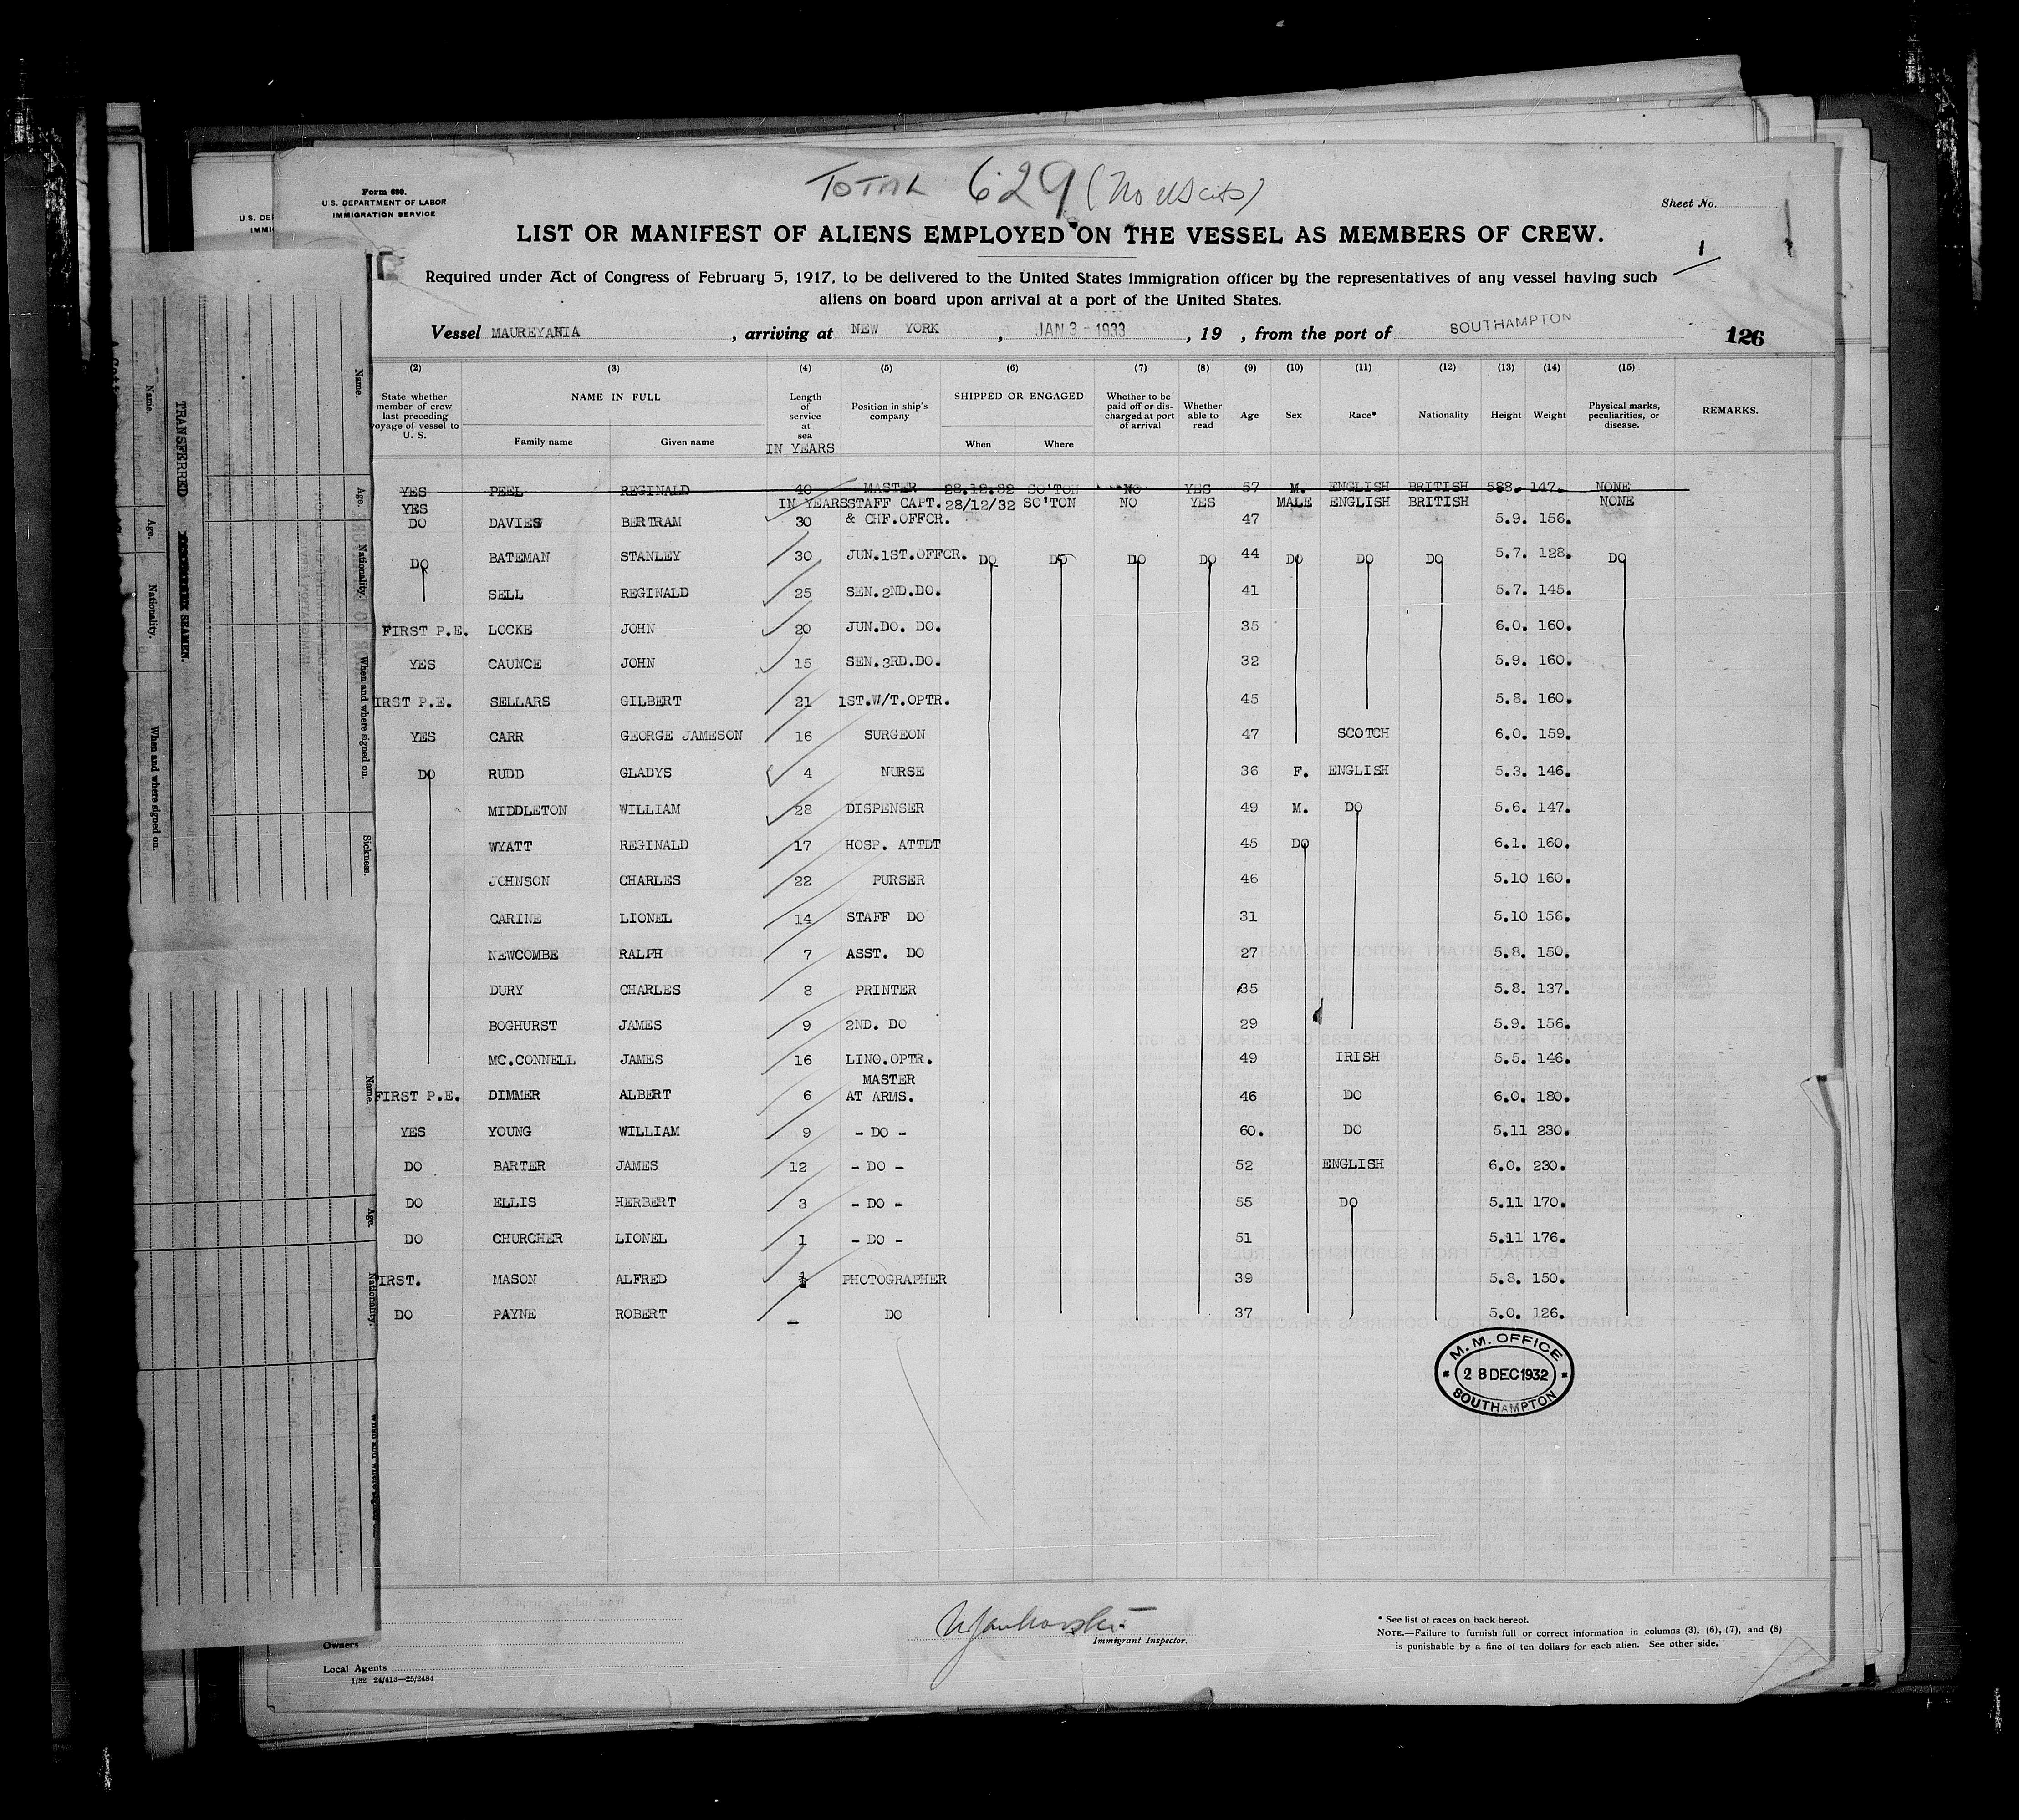 TOTAL 629 (No US cits)
Form 680.
U.S. DEPARTMENT OF LABOR
IMMIGRATION SERVICE
Sheet No.
1
LIST OR MANIFEST OF ALIENS EMPLOYED ON THE VESSEL AS MEMBERS OF CREW.
Required under Act of Congress of February 5, 1917, to be delivered to the United States immigration officer by the representatives of any vessel having such
aliens on board upon arrival at a port of the United States.
Vessel MAUREYANIA, arriving at NEW YORK, JAN 3 - 1933, 19 , from the port of SOUTHAMPTON 126
(2) (3) (4) (5) (6) (7) (8) (9) (10) (11) (12) (13) (14) (15)
State whether member of crew last preceding voyage of vessel to U. S. NAME IN FULL Family name Given name Length of service at sea IN YEARS Position in ship's company SHIPPED OR ENGAGED When Where Whether to be paid off or discharged at port of arrival Whether able to read Age Sex Race* Nationality Height Weight Physical marks, peculiarities, or disease. REMARKS.
YES PEEL REGINALD 40 MASTER 28.12.32 SO'TON NO YES 57 M. ENGLISH BRITISH 588. 147. NONE
YES IN YEARS STAFF CAPT. 28/12/32 SO'TON NO YES MALE ENGLISH BRITISH NONE
DO DAVIES BERTRAM 30 & CHF.OFFCR. 47 5.9. 156.
DO BATEMAN STANLEY 30 JUN.1ST.OFFCR. DO DO DO DO 44 DO DO DO 5.7. 128. DO
SELL REGINALD 25 SEN.2ND.DO. 41 5.7. 145.
FIRST P.E. LOCKE JOHN 20 JUN.DO. DO. 35 6.0. 160.
YES CAUNCE JOHN 15 SEN.3RD.DO. 32 5.9. 160.
IRST P.E. SELLARS GILBERT 21 1ST.W/T.OPTR. 45 5.8. 160.
YES CARR GEORGE JAMESON 16 SURGEON 47 SCOTCH 6.0. 159.
DO RUDD GLADYS 4 NURSE 36 F. ENGLISH 5.3. 146.
MIDDLETON WILLIAM 28 DISPENSER 49 M. DO 5.6. 147.
WYATT REGINALD 17 HOSP. ATTDT 45 DO 6.1. 160.
JOHNSON CHARLES 22 PURSER 46 5.10 160.
CARINE LIONEL 14 STAFF DO 31 5.10 156.
NEWCOMBE RALPH 7 ASST. DO 27 5.8. 150.
DURY CHARLES 8 PRINTER 35 5.8. 137.
BOGHURST JAMES 9 2ND. DO 29 5.9. 156.
MC.CONNELL JAMES 16 LINO.OPTR. 49 IRISH 5.5. 146.
MASTER
FIRST P.E. DIMMER ALBERT 6 AT ARMS. 46 DO 6.0. 180.
YES YOUNG WILLIAM 9 - DO - 60. DO 5.11 230.
DO BARTER JAMES 12 - DO - 52 ENGLISH 6.0. 230.
DO ELLIS HERBERT 3 - DO - 55 DO 5.11 170.
DO CHURCHER LIONEL 1 - DO - 51 5.11 176.
IRST. MASON ALFRED PHOTOGRAPHER 39 5.8. 150.
DO PAYNE ROBERT - DO 37 5.0. 126.
M. M. OFFICE
28 DEC 1932
SOUTHAMPTON
Immigrant Inspector.
* See list of races on back hereof.
NOTE.—Failure to furnish full or correct information in columns (3), (6), (7), and (8)
is punishable by a fine of ten dollars for each alien. See other side.
Owners
Local Agents
1/32 24/413—25/2484
U S. DE
IMMI
TRANSFERRED
SEAMEN.
Name.
Age.
Nationality.
When and where signed on.
Name.
Age.
Nationality.
When and where signed on.
Sickness.
Name.
Age.
Nationality.